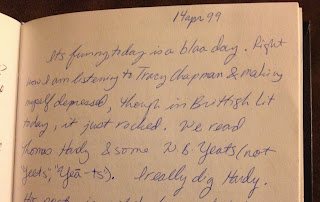 14apr99
Its funny, today is a blaa day. Right
now I am listening to Tracy Chapman & making
myself depressed, though in Brittish Lit
today, it just rocked. We read
Thomas Hardy & some W.B. Yeats (not
"Yeets", "Yeā-ts"). I really dig Hardy.
His